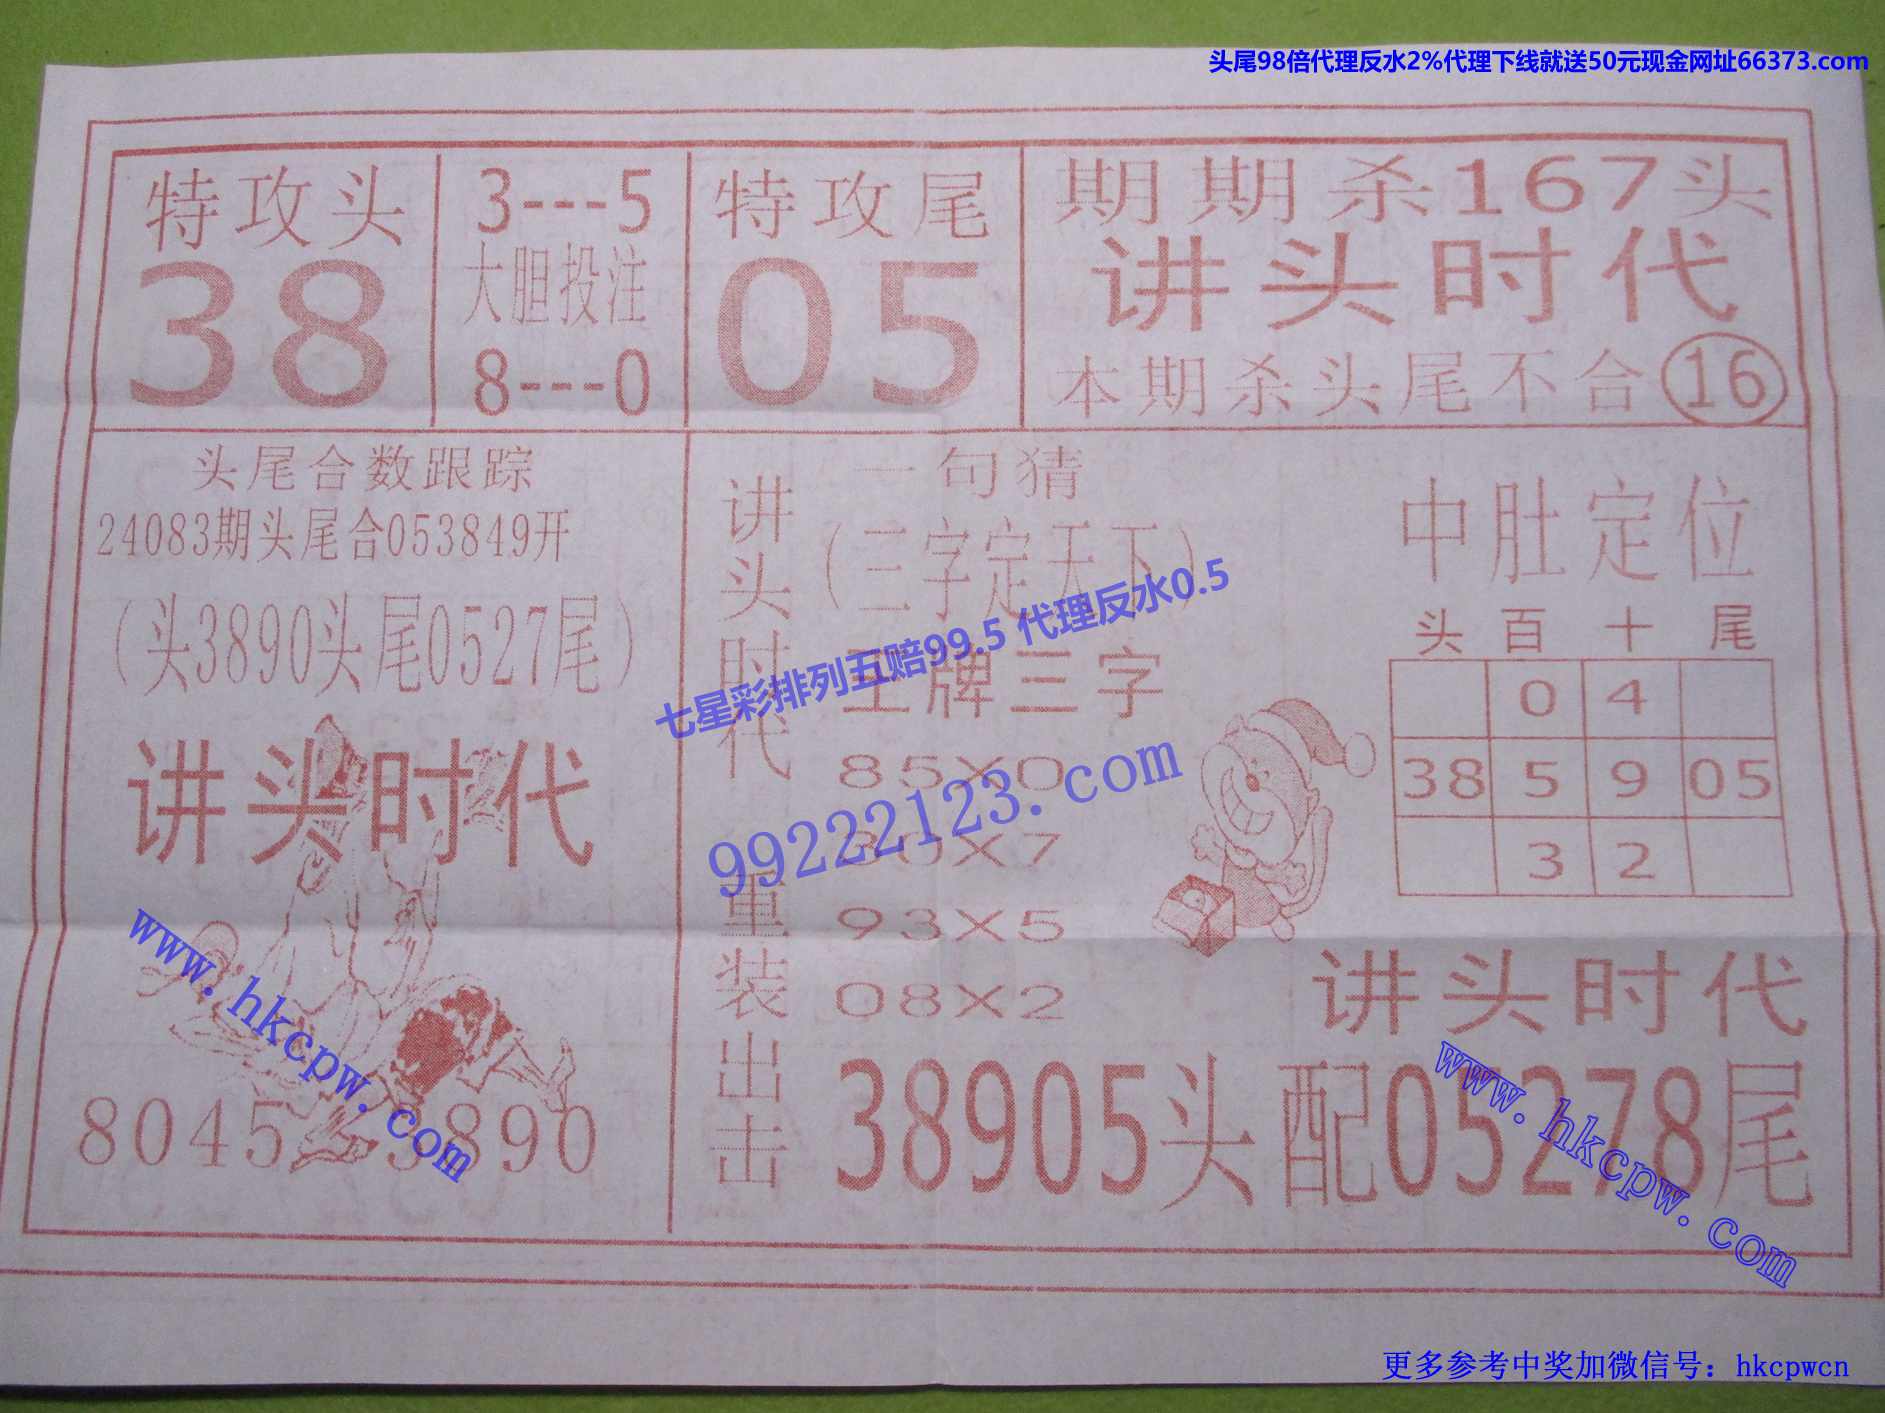 头尾98倍代理反水2%代理下线就送50元现金网址66373.com
特攻头
38
3---5
大胆投注
8---0
特攻尾
05
期期杀167头
讲头时代
本期杀头尾不合16
头尾合数跟踪
24083期头尾合053849开
(头3890头尾0527尾)
讲头时代
8045 3890
讲头时代重装出击
一句猜
(三字定天下)
王牌三字
85X0
30X7
93X5
08X2
中肚定位
头 百 十 尾
0 4
38 5 9 05
3 2
讲头时代
38905头配05278尾
七星彩排列五赔99.5 代理反水0.5
99222123.com
www.hkcpw.com
www.hkcpw.com
更多参考中奖加微信号：hkcpwcn